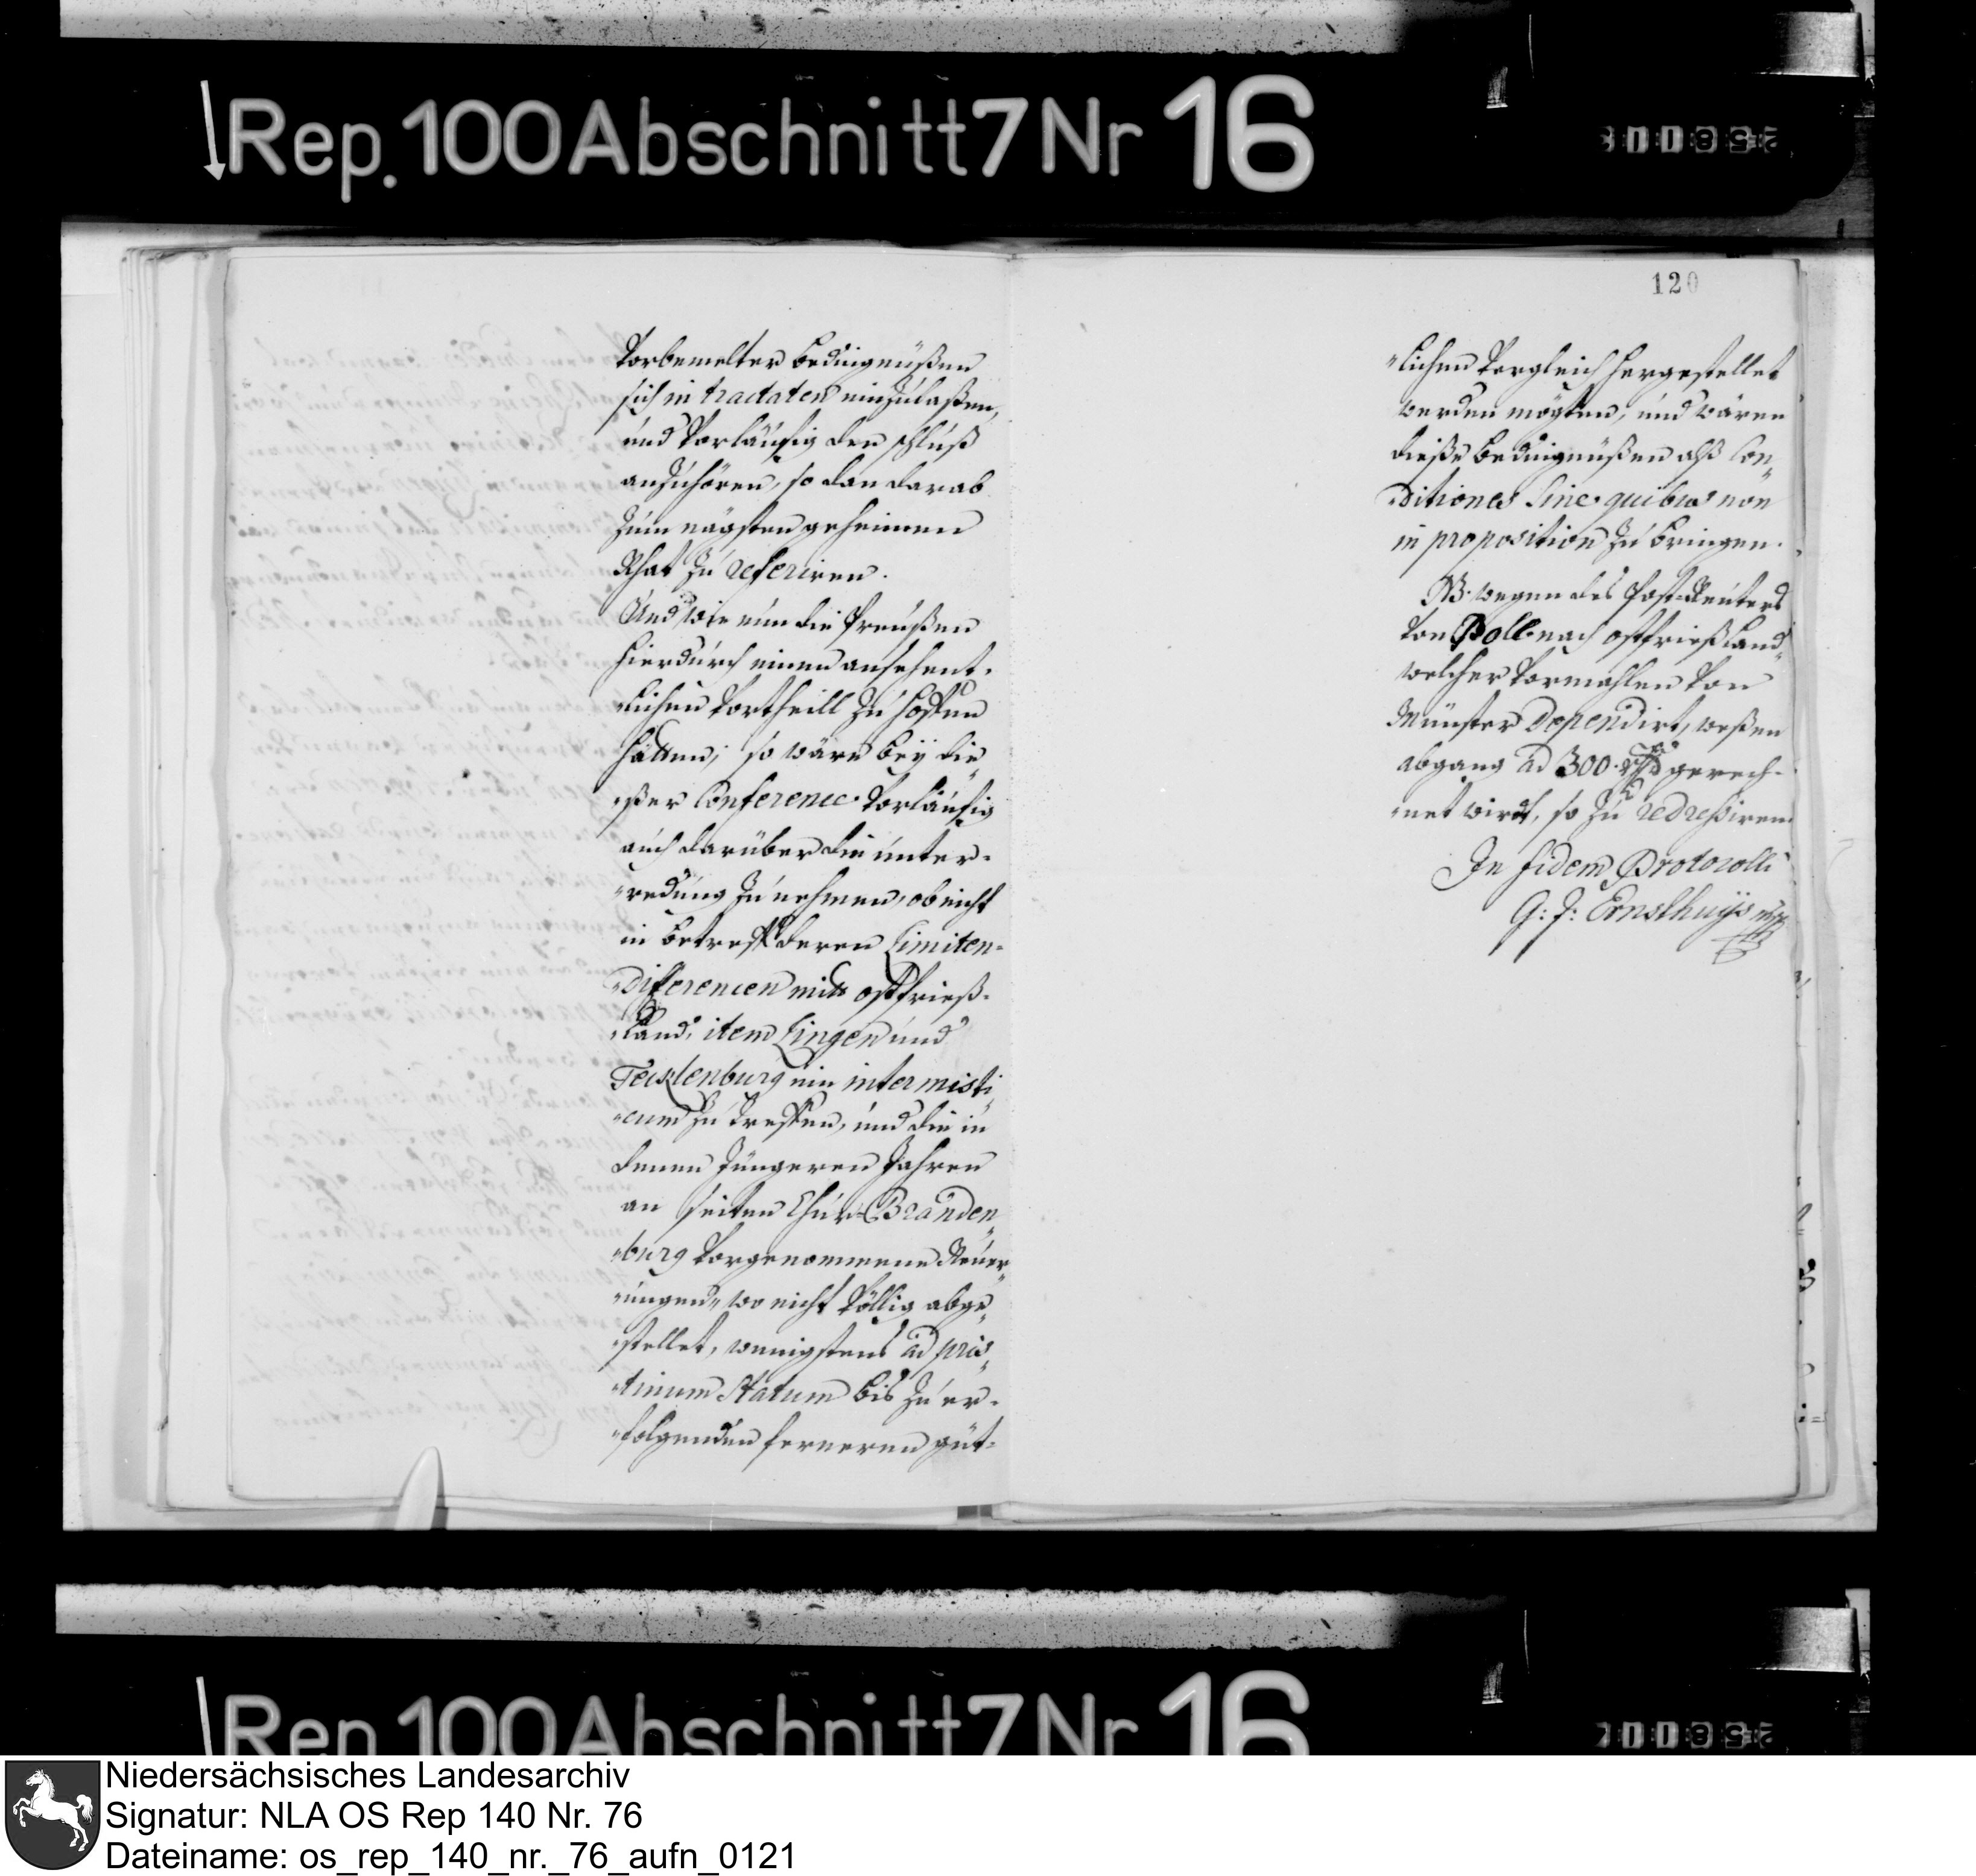 Rep. 100 Abschnitt 7 Nr 16
Vorbemelter bedingnüßen
sich in tractaten einzulaßen,
und Vorläufig den schluß
anzuhören, so dan darab
zum nägsten geheimen
Rhat zu referiren.
Und wie nun die Preußen
hierdurch einen ansehent-
"lichen Vortheill zu hoffen
hätten; so wäre bey die"
"ßer Conference Vorläufig
auch darüber die unter-
"redung zu nehmen, ob nicht
in betreff deren Limiten-
"Differencen mitt ostfrieß-
"land, item Lingen und
Tecklenburg ein interimisti"
"cum zu treffen, und die in
denen Jüngeren Jahren
an seiten Chur-Branden"
"burg Vorgenommene Neuer"
"ungen, wo nicht Völlig abge"
"stellet, wenigstens ad pris"
"tinum Statum bis zu er-
"folgenden ferneren güt-
120
"lichen Vergleich hergestellet
werden mögten, und wären
dieße bedingnüßen alß Con"
"ditiones sine quibus non
in proposition zu bringen.
NB. wegen des Post-Reuters
von Poll nach ostfrießland"
welcher Vormahlen Von
Münster dependirt, weßen
abgang ad 300. gerech-
"net wirdt, so zu redressiren.
In fidem Protocolli
G: J: Ernsthuijs mpp
Rep 100 Abschnitt 7 Nr 16
Niedersächsisches Landesarchiv
Signatur: NLA OS Rep 140 Nr. 76
Dateiname: os_rep_140_nr._76_aufn_0121